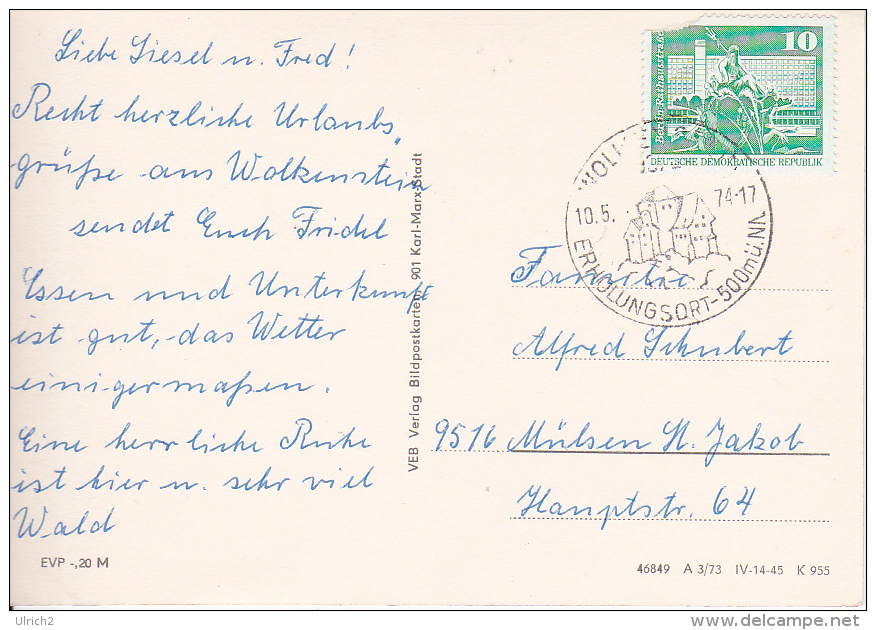 Liebe Liesel u. Fred!
Recht herzliche Urlaubs„
grüße aus Wolkenstein
sendet Euch Fridel
Essen und Unterkunft
ist gut, das Wetter
einigermaßen.
Eine herrliche Ruhe
ist hier u. sehr viel
Wald
EVP -,20 M
VEB Verlag Bildpostkarten, 901 Karl-Marx-Stadt
10
DEUTSCHE DEMOKRATISCHE REPUBLIK
10.5. 74-17
ERHOLUNGSORT-500m ü.NN
Familie
Alfred Schubert
9516 Mülsen St. Jakob
Hauptstr. 64
46849 A 3/73 IV-14-45 K 955
Ulrich2
delcampe.net